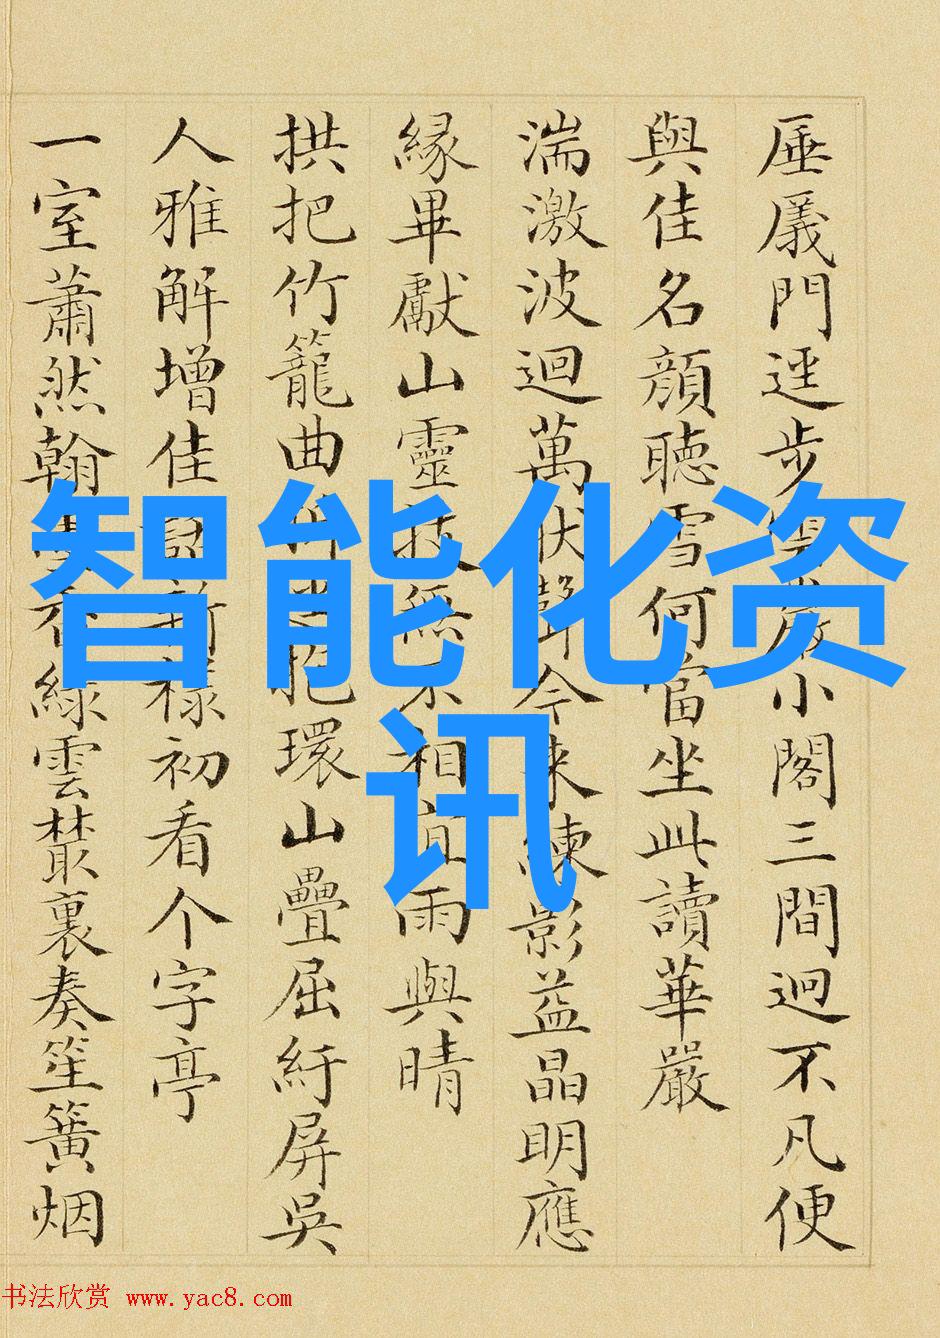 厜㕒門逕步小閣三間迥不凡便
與佳名顏聽雪何當坐此讀華嚴
湍激波迴萬伏聲今來練影益晶明應
緣畢獻山靈技無不相宜雨與晴
拱把竹籠曲環山疊屈紆屏吳
人雅解增佳新樣初看个字亭
一室蕭然翰墨香綠雲叢裏奏笙簧烟
智能化资
讯
书法欣赏 www.yac8.com